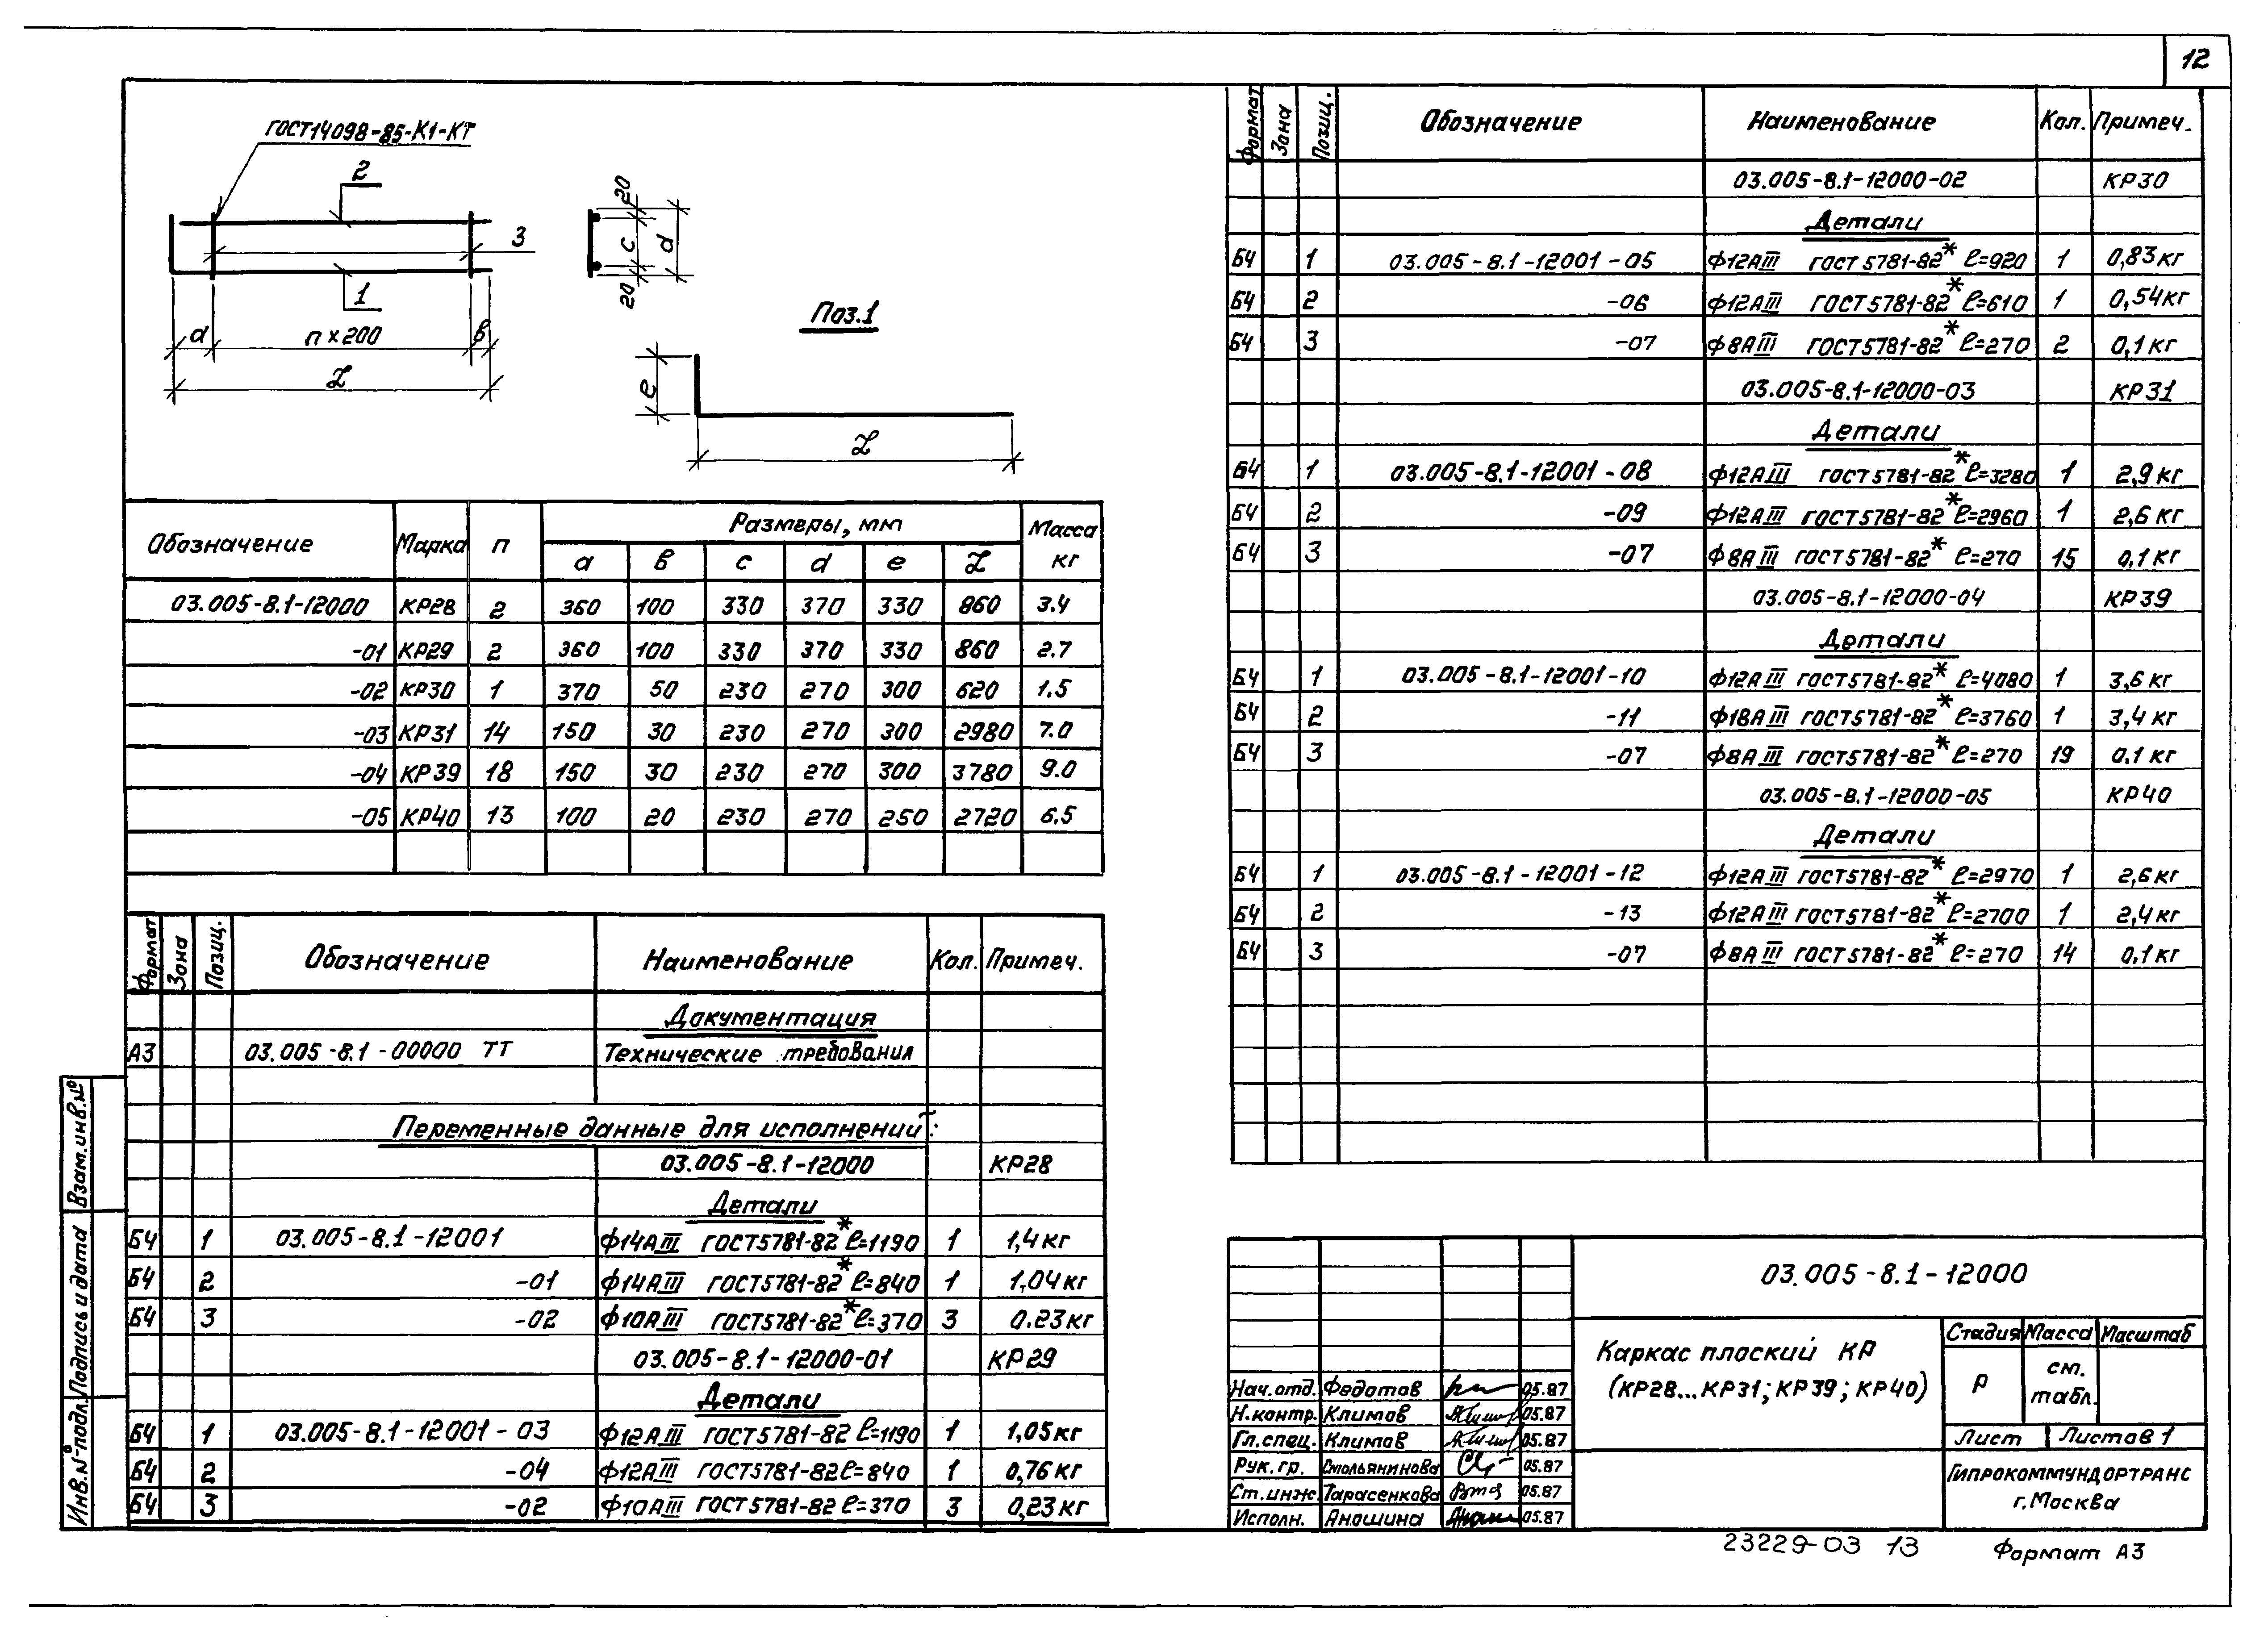 12
ГОСТ14098-85-К1-КТ
2
3
1
а
п×200
в
L
20
с
d
20
Поз.1
е
L
Обозначение Марка п Размеры, мм Масса кг
а в с d е L
03.005-8.1-12000 КР28 2 360 100 330 370 330 860 3.4
-01 КР29 2 360 100 330 370 330 860 2.7
-02 КР30 1 370 50 230 270 300 620 1.5
-03 КР31 14 150 30 230 270 300 2980 7.0
-04 КР39 18 150 30 230 270 300 3780 9.0
-05 КР40 13 100 20 230 270 250 2720 6,5
Формат Зона Позиц. Обозначение Наименование Кол. Примеч.
Документация
А3 03.005-8.1-00000 ТТ Технические требования
Переменные данные для исполнений:
03.005-8.1-12000 КР28
Детали
БЧ 1 03.005-8.1-12001 Ф14АIII ГОСТ5781-82* ℓ=1190 1 1,4кг
БЧ 2 -01 Ф14АIII ГОСТ5781-82* ℓ=840 1 1,04кг
БЧ 3 -02 Ф10АIII ГОСТ5781-82* ℓ=370 3 0.23кг
03.005-8.1-12000-01 КР29
Детали
БЧ 1 03.005-8.1-12001-03 Ф12АIII ГОСТ5781-82 ℓ=1190 1 1,05кг
БЧ 2 -04 Ф12АIII ГОСТ5781-82 ℓ=840 1 0,76кг
БЧ 3 -02 Ф10АIII ГОСТ5781-82 ℓ=370 3 0,23кг
Взам.инв.№
Подпись и дата
Инв.№подл.
Формат Зона Позиц. Обозначение Наименование Кол. Примеч.
03.005-8.1-12000-02 КР30
Детали
БЧ 1 03.005-8.1-12001-05 Ф12АIII ГОСТ5781-82* ℓ=920 1 0,83кг
БЧ 2 -06 Ф12АIII ГОСТ5781-82* ℓ=610 1 0,54кг
БЧ 3 -07 Ф8АIII ГОСТ5781-82* ℓ=270 2 0,1кг
03.005-8.1-12000-03 КР31
Детали
БЧ 1 03.005-8.1-12001-08 Ф12АIII ГОСТ5781-82* ℓ=3280 1 2,9кг
БЧ 2 -09 Ф12АIII ГОСТ5781-82* ℓ=2960 1 2,6кг
БЧ 3 -07 Ф8АIII ГОСТ5781-82* ℓ=270 15 0,1кг
03.005-8.1-12000-04 КР39
Детали
БЧ 1 03.005-8.1-12001-10 Ф12АIII ГОСТ5781-82* ℓ=4080 1 3,6кг
БЧ 2 -11 Ф18АIII ГОСТ5781-82* ℓ=3760 1 3,4кг
БЧ 3 -07 Ф8АIII ГОСТ5781-82* ℓ=270 19 0.1кг
03.005-8.1-12000-05 КР40
Детали
БЧ 1 03.005-8.1-12001-12 Ф12АIII ГОСТ5781-82* ℓ=2970 1 2,6кг
БЧ 2 -13 Ф12АIII ГОСТ5781-82* ℓ=2700 1 2,4кг
БЧ 3 -07 Ф8АIII ГОСТ5781-82* ℓ=270 14 0,1кг
03.005-8.1-12000
Каркас плоский КР
(КР28...КР31; КР39; КР40)
Стадия Масса Масштаб
Р см. табл.
Лист Листов 1
Гипрокоммундортранс
г.Москва
Нач.отд. Федотов 05.87
Н.контр. Климов 05.87
Гл.спец. Климов 05.87
Рук.гр. Смольянинова 05.87
Ст.инж. Тарасенкова 05.87
Исполн. Аношина 05.87
23229-03 13
Формат А3